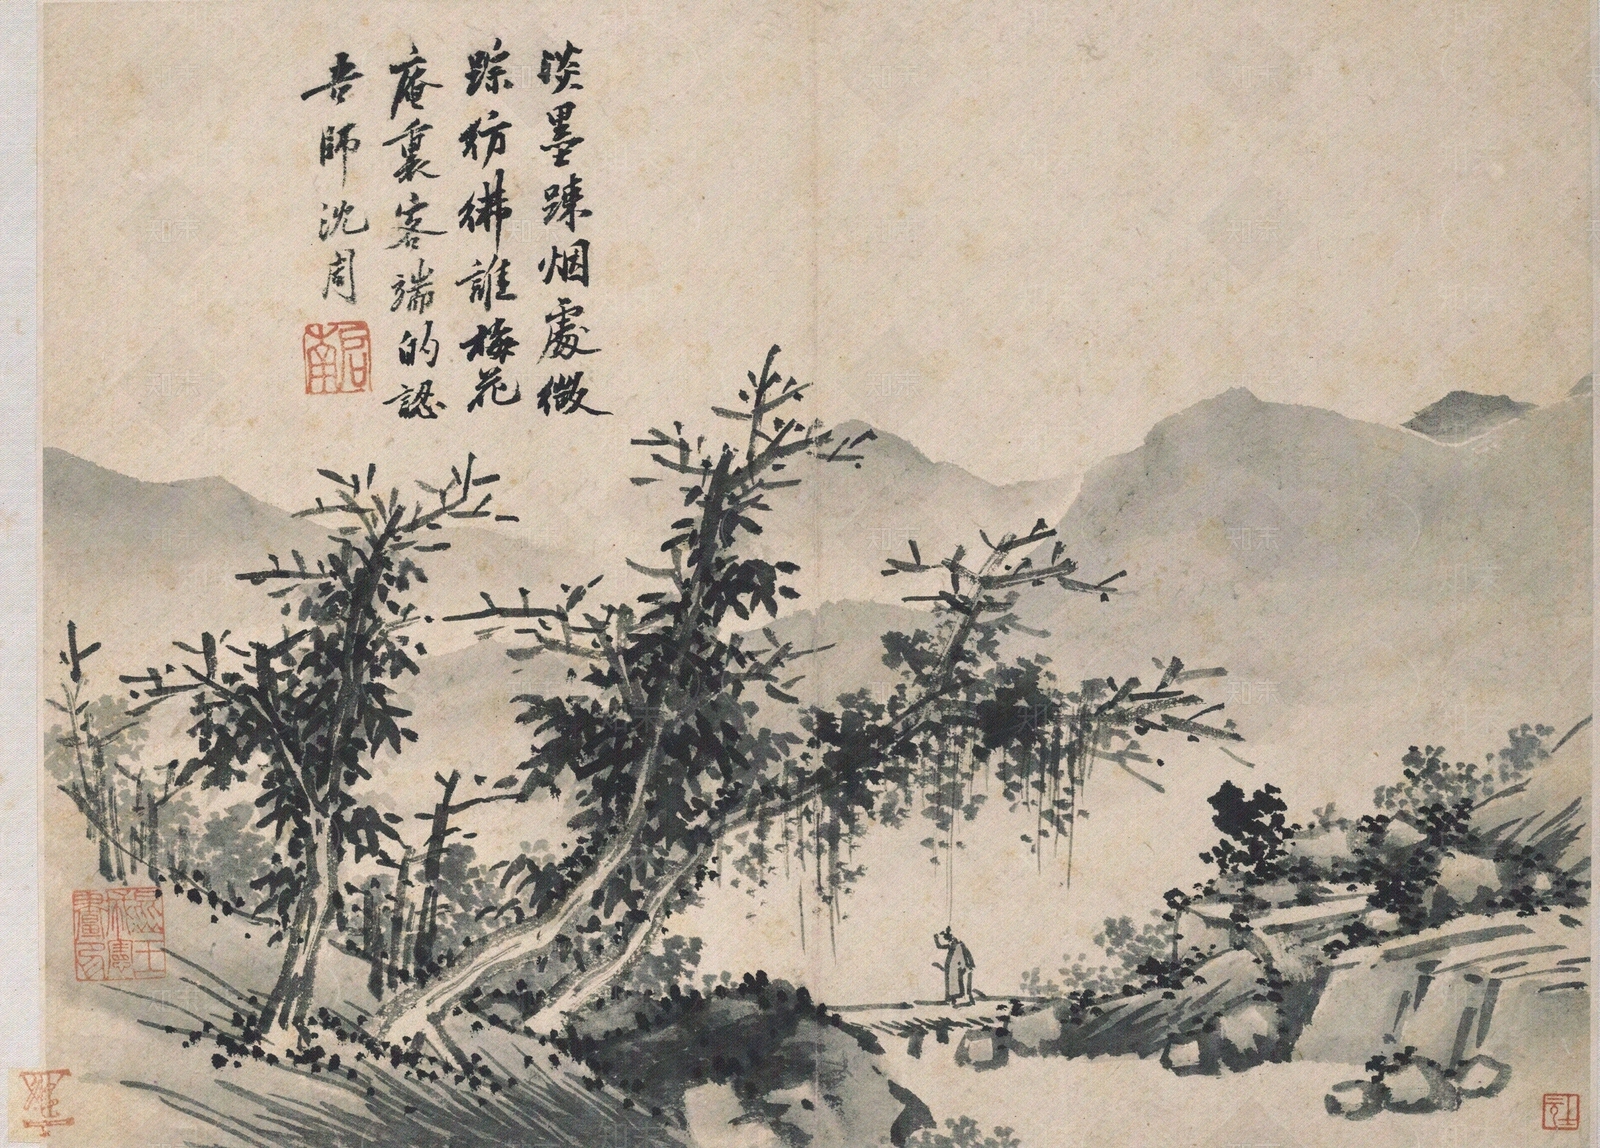 淡墨踈烟處微
踪彷彿誰梅花
庵裏客端的認
吾師沈周
啟南
知末